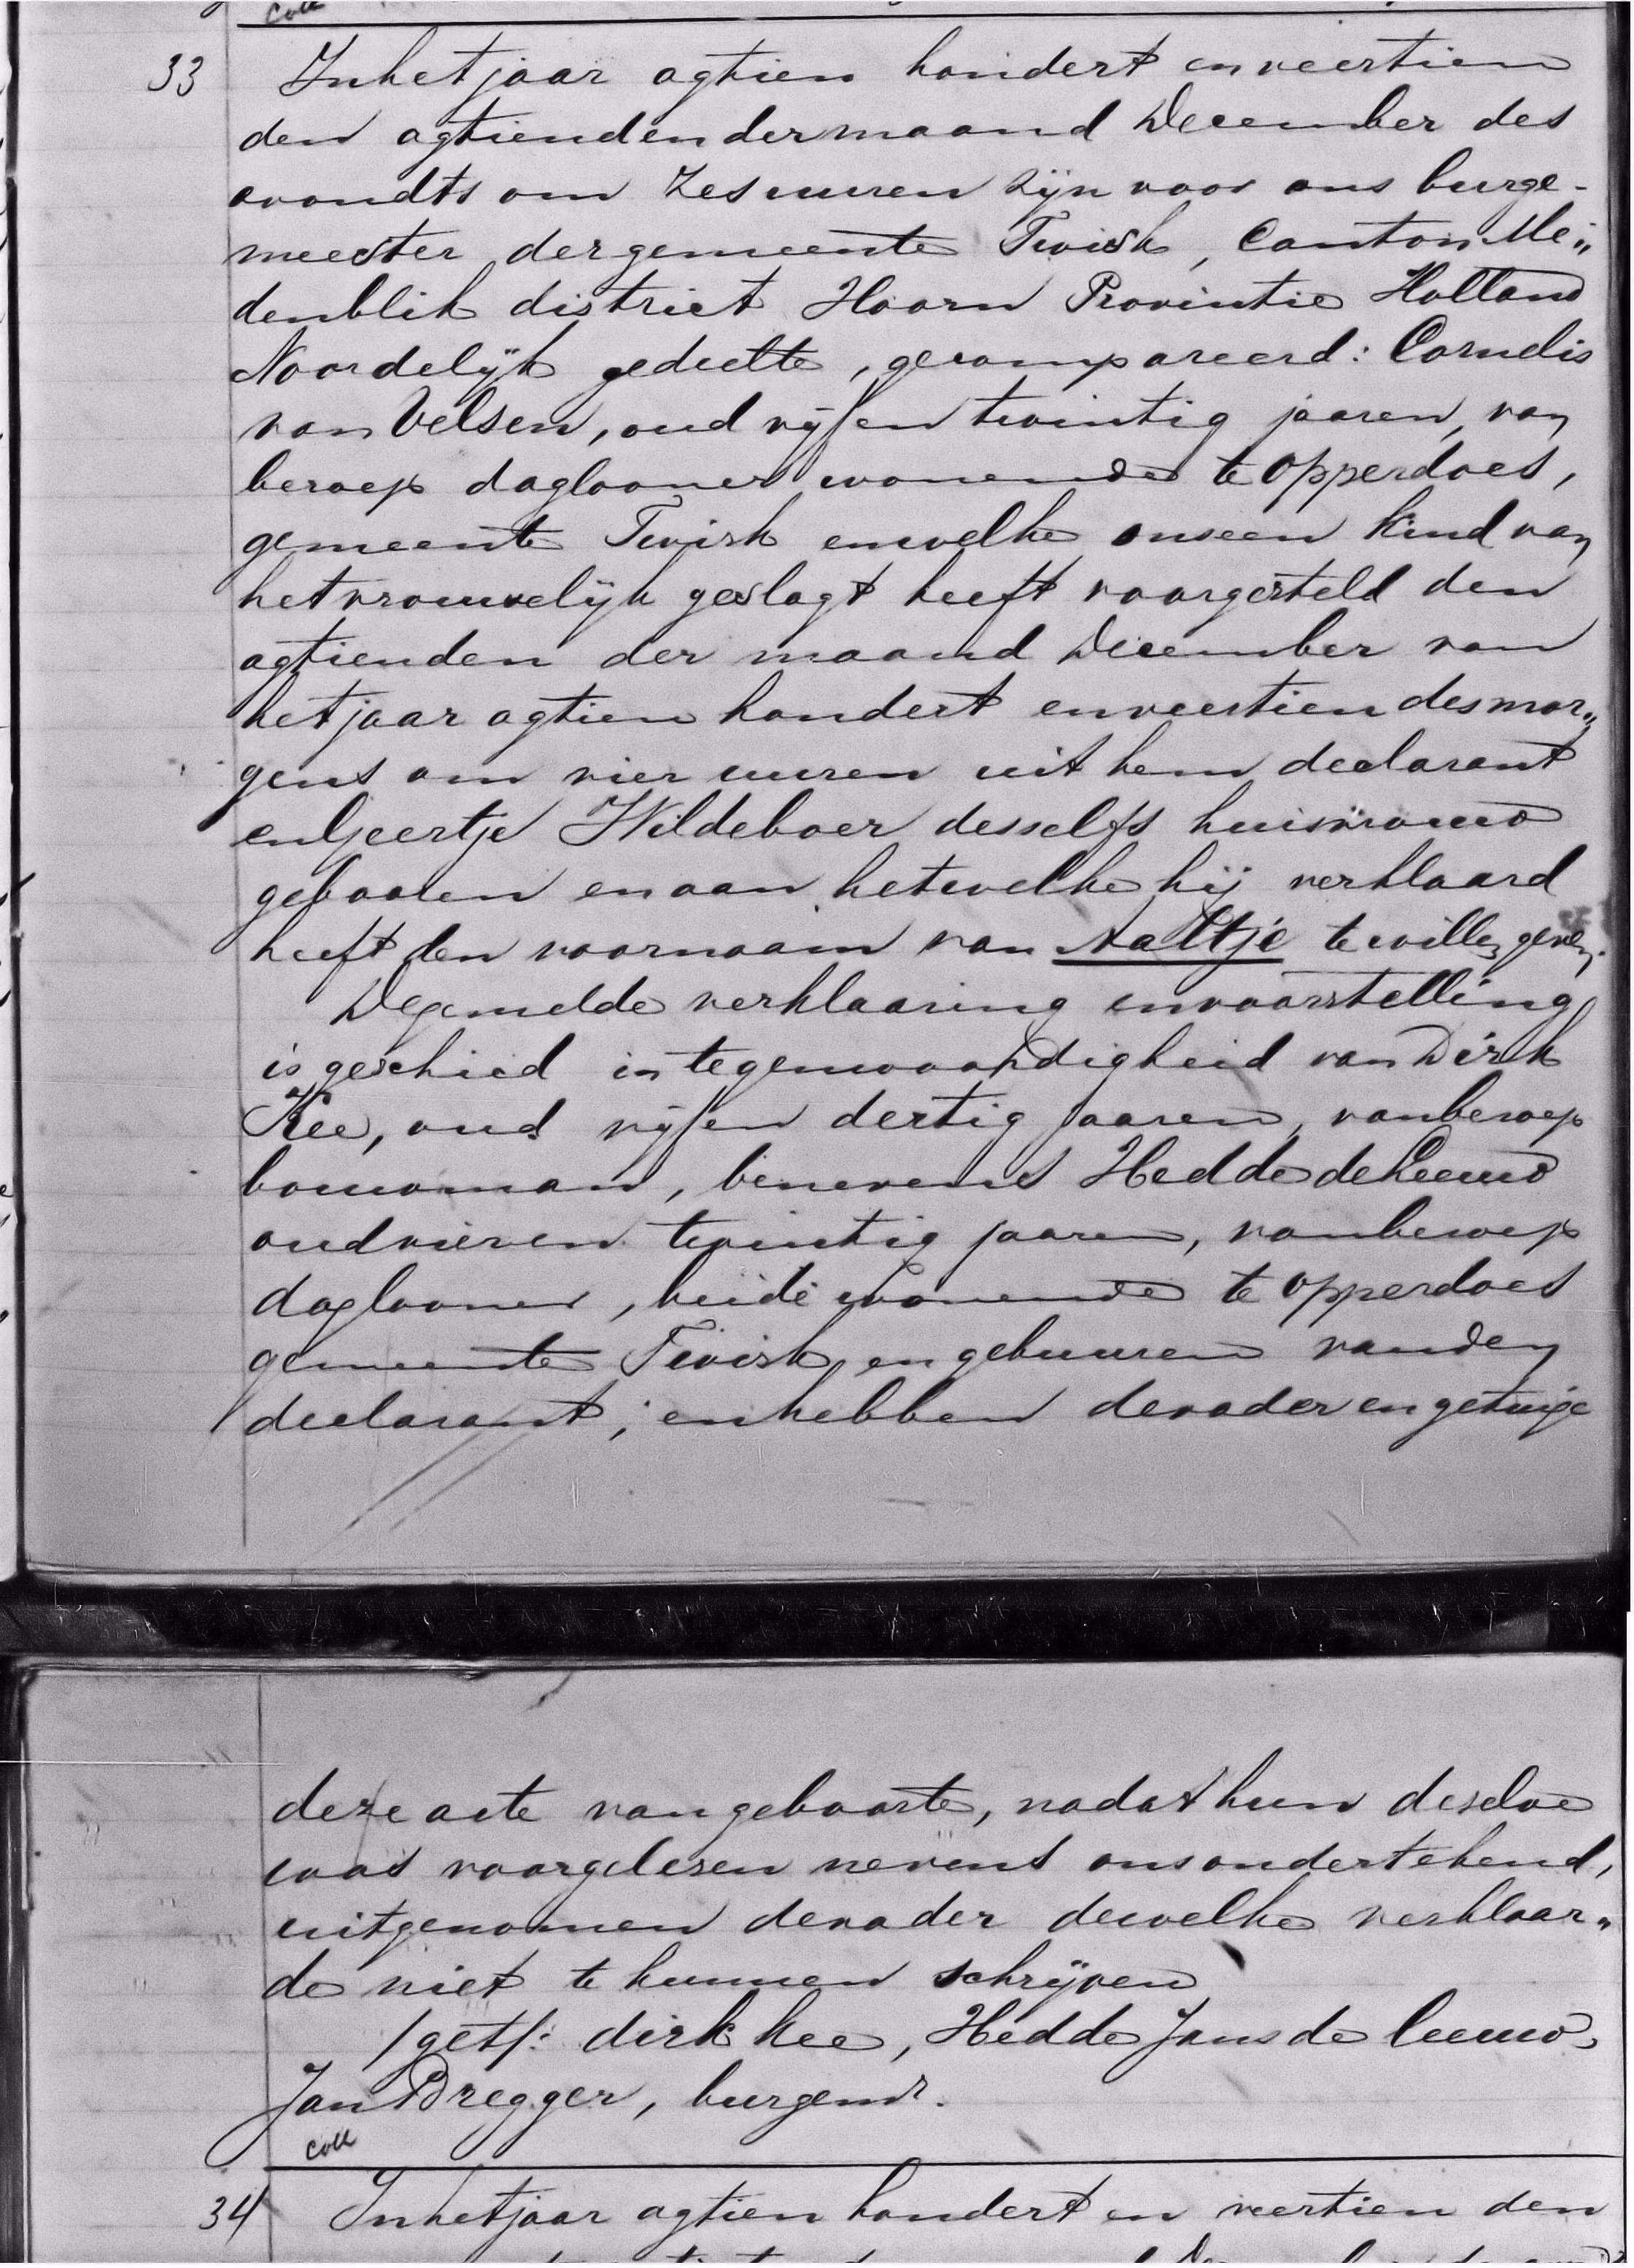 coll
33 In het jaar agtien hondert en veertien
den agtienden der maand December des
avondts om zes uuren zijn voor ons burge-
meester der gemeente Twisk, Canton Me„
denblik district Hoorn Provintie Holland
Noordelijk gedeelte, gecompareerd: Cornelis
van Velsen, oud vijf en twintig jaaren, van
beroep daglooner wonende te Opperdoes,
gemeente Twisk en welke ons een kind van
het vrouwelijk geslagt heeft voorgesteld den
agtienden der maand December van
het jaar agtien hondert en veertien des mor„
gens om vier uuren uit hem declarant
en Geertje Wildeboer desselfs huisvrouw
gebooren en aan hetwelke hij verklaard
heeft den voornaam van Aaltje te willen geven.
De gemelde verklaaring en voorstelling
is geschied in tegenwoordigheid van Dirk
Kee, oud vijf en dertig jaaren, van beroep
bouwman, benevens Hedde de Leeuw
oud vier en twintig jaaren, van beroep
daglooner, beide wonende te Opperdoes
gemeente Twisk, en gebuuren van den
declarant; en hebben de vader en getuige
deze acte van geboorte, nadat hun deselve
was voorgelesen nevens ons ondertekend,
uitgenomen de vader dewelke verklaar„
de niet te kunnen schrijven
/get/: dirk kee, Hedde Jans de leeuw,
Jan Bregger, burgemr.
coll
34 In het jaar agtien hondert en veertien den